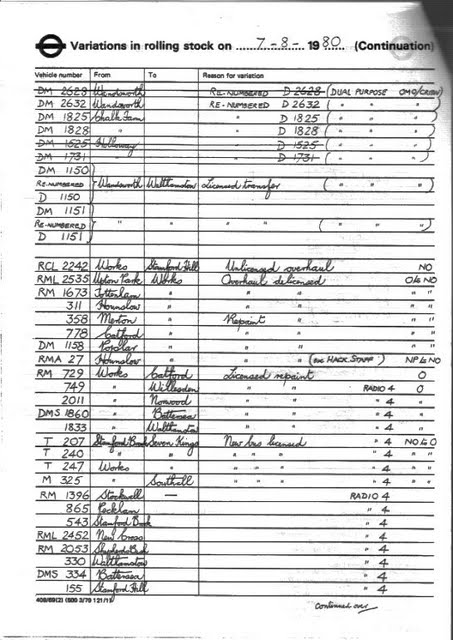 Variations in rolling stock on 7-8- 1980 (Continuation)
Vehicle number From To Reason for variation
DM 2628 Wandsworth RE-NUMBERED D 2628 (DUAL PURPOSE OMO/CREW)
DM 2632 Wandsworth RE-NUMBERED D 2632 ( " " " )
DM 1825 Chalk Farm " D 1825 ( " " " )
DM 1828 " " D 1828 ( " " " )
DM 1525 Holloway " D 1525 ( " " " )
DM 1731 " " D 1731 ( " " " )
DM 1150
RE-NUMBERED Wandsworth Walthamstow Licensed transfer ( " " " )
D 1150
DM 1151
RE-NUMBERED " " " " ( " " " )
D 1151
RCL 2242 Works Stamford Hill Unlicensed overhaul NO
RML 2535 Upton Park Works Overhaul delicensed O to NO
RM 1673 Tottenham " " " " "
311 Hounslow " " " " "
358 Merton " Repaint " " "
778 Catford " " " " "
DM 1158 Poplar " " " " "
RMA 27 Hounslow " " " (ex HACK STAFF) NP to NO
RM 729 Works Catford Licensed repaint O
749 " Willesden " " RADIO 4 O
2011 " Norwood " " " 4 "
DMS 1860 " Battersea " " " 4 "
1833 " Walthamstow " " " 4 "
T 207 Stamford Brook Seven Kings New bus licensed " 4 NO to O
T 240 " " " " " " 4 " "
T 247 Works " " " " " 4 " "
M 325 " Southall " " " " 4 " "
RM 1396 Stockwell — RADIO 4
865 Peckham " 4
543 Stamford Brook " 4
RML 2452 New Cross " 4
RM 2053 Shepherds Bush " 4
330 Walthamstow " 4
DMS 334 Battersea " 4
155 Stamford Hill " 4
Continued over